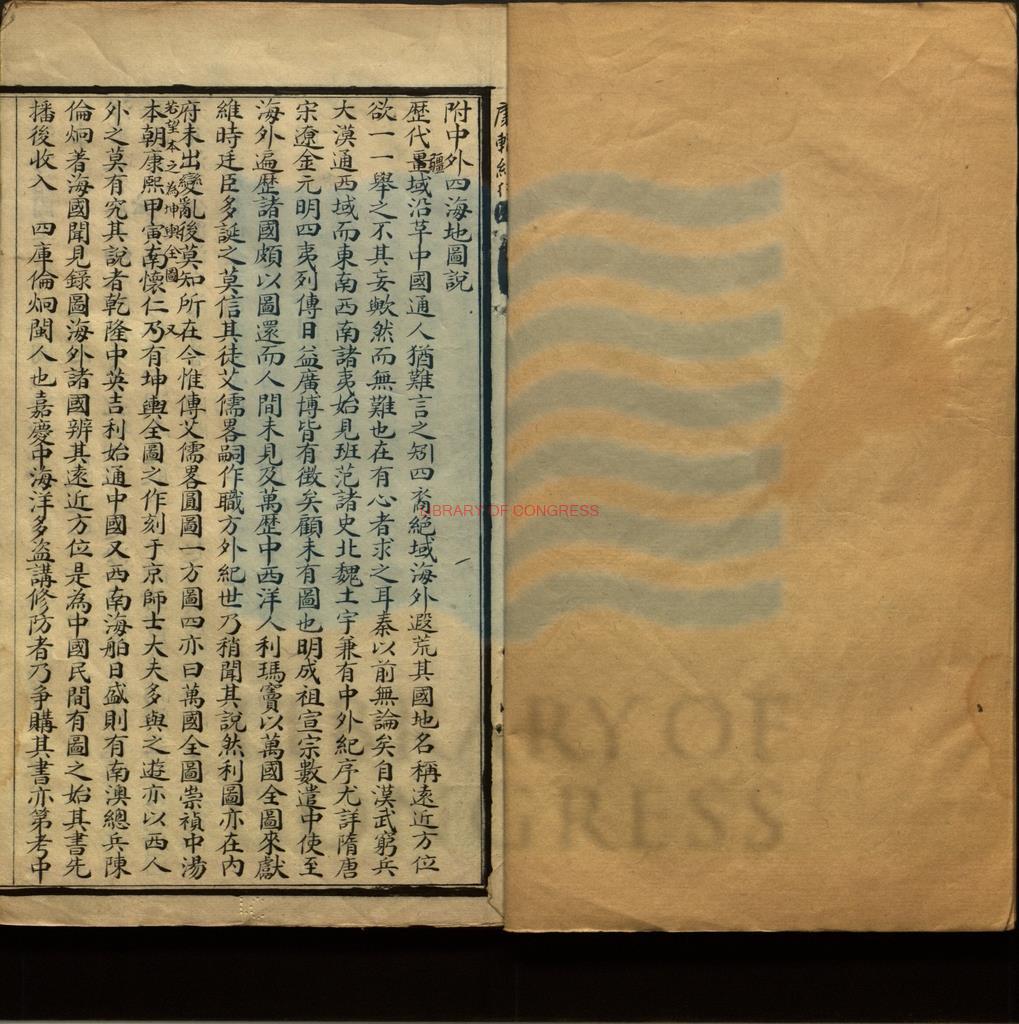 附中外四海地圖說
歷代疆域沿革中國通人猶難言之矧四裔絕域海外遐荒其國地名稱遠近方位
欲一一舉之不其妄歟然而無難也在有心者求之耳秦以前無論矣自漢武窮兵
大漠通西域而東南西南諸夷始見班范諸史北魏土宇兼有中外紀序尤詳隋唐
宋遼金元明四夷列傳日益廣博皆有徵矣顧未有圖也明成祖宣宗數遣中使至
海外遍歷諸國頗以圖還而人間未見及萬歷中西洋人利瑪竇以萬國全圖來獻
維時廷臣多誕之莫信其徒艾儒畧嗣作職方外紀世乃稍聞其說然利圖亦在內
府未出變亂後莫知所在今惟傳艾儒畧圓圖一方圖四亦曰萬國全圖崇禎中湯
若望本之為坤輿全圖 又
本朝康熙甲寅南懷仁乃有坤輿全圖之作刻于京師士大夫多與之遊亦以西人
外之莫有究其說者乾隆中英吉利始通中國又西南海舶日盛則有南澳總兵陳
倫炯著海國聞見錄圖海外諸國辨其遠近方位是為中國民間有圖之始其書先
播後收入 四庫倫炯閩人也嘉慶中海洋多盜講修防者乃爭購其書亦第考中
LIBRARY OF CONGRESS